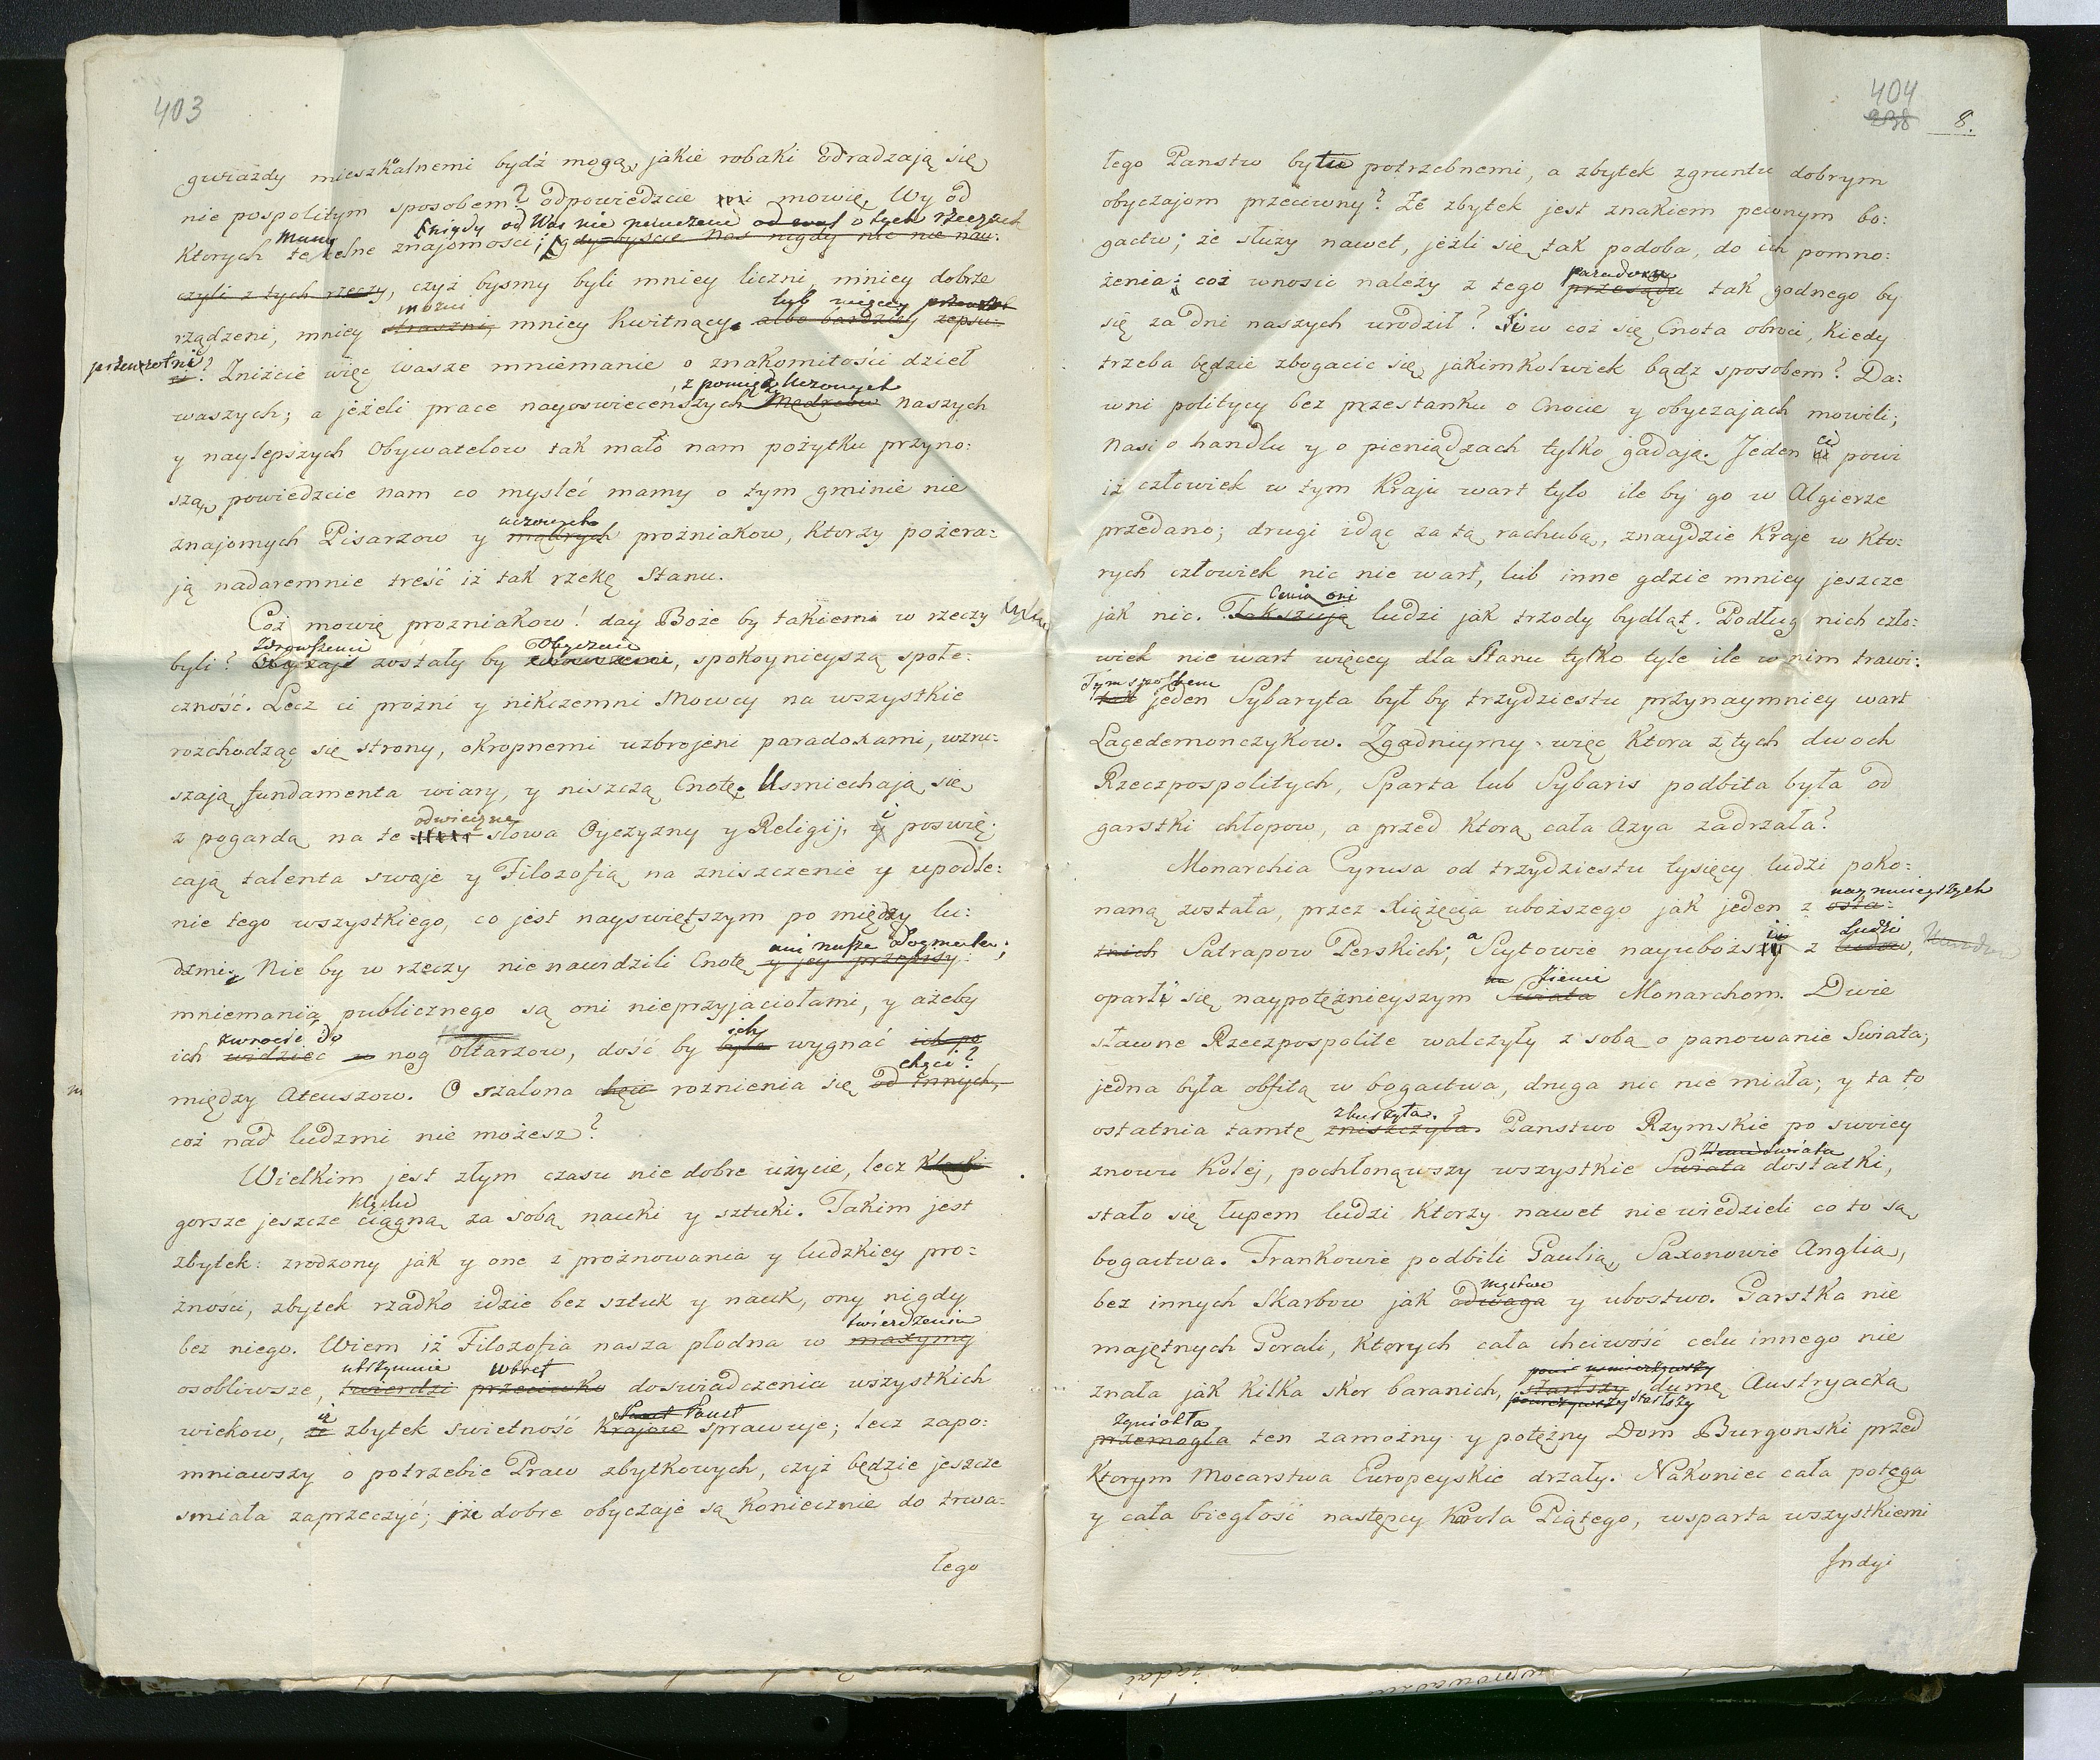 403
gwiazdy mieszkalnemi bydź mogą, jakie robaki odradzają się
nie pospolitym sposobem? odpowiedzcie mi mowię, Wy od
nigdy od Was nie pouczeni o tych rzeczach
Mamy
Ktorych te celne znajomosci; gdybyscie Nas nigdy nic nie nau:
czyli z tych rzeczy, czyż bysmy byli mniey liczni, mniey dobrze
możni
lub więcey przewrot
rządzeni, mniey straszni, mniey kwitnący, albo bardziey zepsu:
przewrotni?
ci? Zniżcie więc wasze mniemanie o znakomitości dzieł
z pomiędzy Uczonych
waszych; a jeżeli prace nayoswiecenszych Mędrcow naszych
y naylepszych Obywatelow tak mało nam pożytku przyno:
szą, powiedzcie nam co mysleć mamy o tym gminie nie
uczonych
znajomych Pisarzow y mądrych prożniakow, ktorzy pożera:
ją nadaremnie treść iż tak rzekę Stanu.
Coż mowię prozniakow! day Boże by takiemi w rzeczy tylko
Zdrowszemi
Obyczaie
byli? Obyczaje zostały by zdrowszemi, spokoynieyszą społe:
czność. Lecz ci próżni y nikczemni Mowcy na wszystkie
rozchodząc się strony, okropnemi uzbrojeni paradoxami, wzru:
szają fundamenta wiary, y niszczą Cnotę. Usmiechają się
odwieczne
z pogardą na te słowa Oyczyzny y Religij, i poswię:
cają talenta swoje y Filozofią na zniszczenie y upodle:
nie tego wszystkiego, co jest nayswiętszym po między lu:
ani nasze dogmata;
dzmi. Nie by w rzeczy nienawidzili Cnotę y jey przepisy:
mniemania publicznego są oni nieprzyjaciołami, y ażeby
zwrocić do
ich
ich widziec u nog ołtarzow, dość by było wygnać ich po
chęci?
między Ateuszow. O szalona chęci roznienia się od innych,
coż nad ludzmi nie możesz?
Wielkim jest złym czasu nie dobre użycie, lecz klęski
klęski
gorsze jeszcze ciągną za sobą nauki y sztuki. Takim jest
zbytek: zrodzony jak y one z prożnowania y ludzkiey pro:
żności, zbytek rzadko idzie bez sztuk y nauk, ony nigdy
twierdzenia
bez niego. Wiem iż Filozofia nasza płodna w maxymy
utrzymuie wbrew
osobliwsze, twierdzi przeciwko doswiadczenia wszystkich
iż
Panstw
wiekow, że zbytek swietność krajow sprawuje; lecz zapo:
mniawszy o potrzebie Praw zbytkowych, czyż będzie jeszcze
smiała zaprzeczyć; że dobre obyczaje są koniecznie do trwa:
łego
404
238
8.
łego Panstw bytu potrzebnemi, a zbytek zgruntu dobrym
obyczajom przeciwny? Że zbytek jest znakiem pewnym bo:
gactw; że służy nawet, jeżli się tak podoba, do ich pomno:
paradoxu
żenia; coż wnosic należy z tego przesądu tak godnego by
się za dni naszych urodził? W coż się Cnota obroci, kiedy
trzeba będzie zbogacic się jakimkolwiek bądz sposobem? Da:
wni politycy bez przestanku o Cnocie y obyczajach mowili;
Nasi o handlu y o pieniądzach tylko gadają. Jeden ci powi
iż człowiek w tym Kraju wart tylo ile by go w Algierze
przedano; drugi idąc za tą rachubą, znaydzie Kraje w kto:
rych człowiek nic nie wart, lub inne gdzie mniey jeszcze
Cenią oni
jak nic. Takszują ludzi jak trzody bydląt. Podług nich czło:
wiek nie wart więcey dla Stanu tylko tyle ile w nim trawi:
Tym sposobem
tak jeden Sybaryta był by trzydziestu przynaymniey wart
Lacedemonczykow. Zgadniymy więc ktora z tych dwoch
Rzeczpospolitych, Sparta lub Sybaris podbita była od
garstki chłopow, a przed ktorą cała Azya zadrzała?
Monarchia Cyrusa od trzydziestu tysięcy ludzi poko:
naymnieyszych
naną została, przez Xiążęcia uboższego jak jeden z osta:
a
Ludzi
tnich Satrapow Perskich; Scytowie nayuboższi z ludow,
na Ziemi
oparli się naypotężnieyszym Swiata Monarchom. Dwie
sławne Rzeczpospolite walczyły z sobą o panowanie Swiata;
jedna była obfitą w bogactwa, druga nic nie miała; y ta to
zburzyła.
ostatnia tamtę zniszczyła. Panstwo Rzymskie po swoiey
Swiata
znowu kolej, pochłonąwszy wszystkie Swiata dostatki,
stało się łupem ludzi ktorzy nawet nie wiedzieli co to są
bogactwa. Frankowie podbili Gaulią, Saxonowie Anglia,
męstwo
bez innych Skarbow jak odwaga y ubostwo. Garstka nie
majętnych Gorali, ktorych cała chciwość celu innego nie
usmierzywszy
znała jak kilka skor baranich, startszy dumę Austryacką
startszy
zgniotła
przemogła ten zamożny y potężny Dom Burgonski przed
Ktorym Mocarstwa Europeyskie drzały. Nakoniec cała potęga
y cała biegłość następcy Karola Piątego, wsparta wszystkiemi
Jndyi